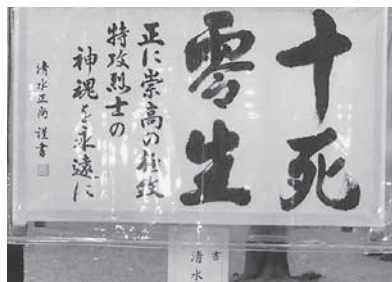 十死
零生
正に崇高の極致
特攻烈士の
神魂を永遠に
清水正尚 謹書
書
清水